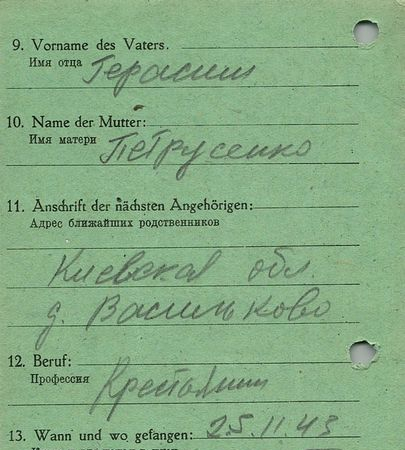 9. Vorname des Vaters.
Имя отца Герасим
10. Name der Mutter:
Имя матери Петрусенко
11. Anschrift der nächsten Angehörigen:
Адрес ближайших родственников
Киевская обл.
д. Васильково
12. Beruf:
Профессия Крестьянин
13. Wann und wo gefangen: 25.11.43